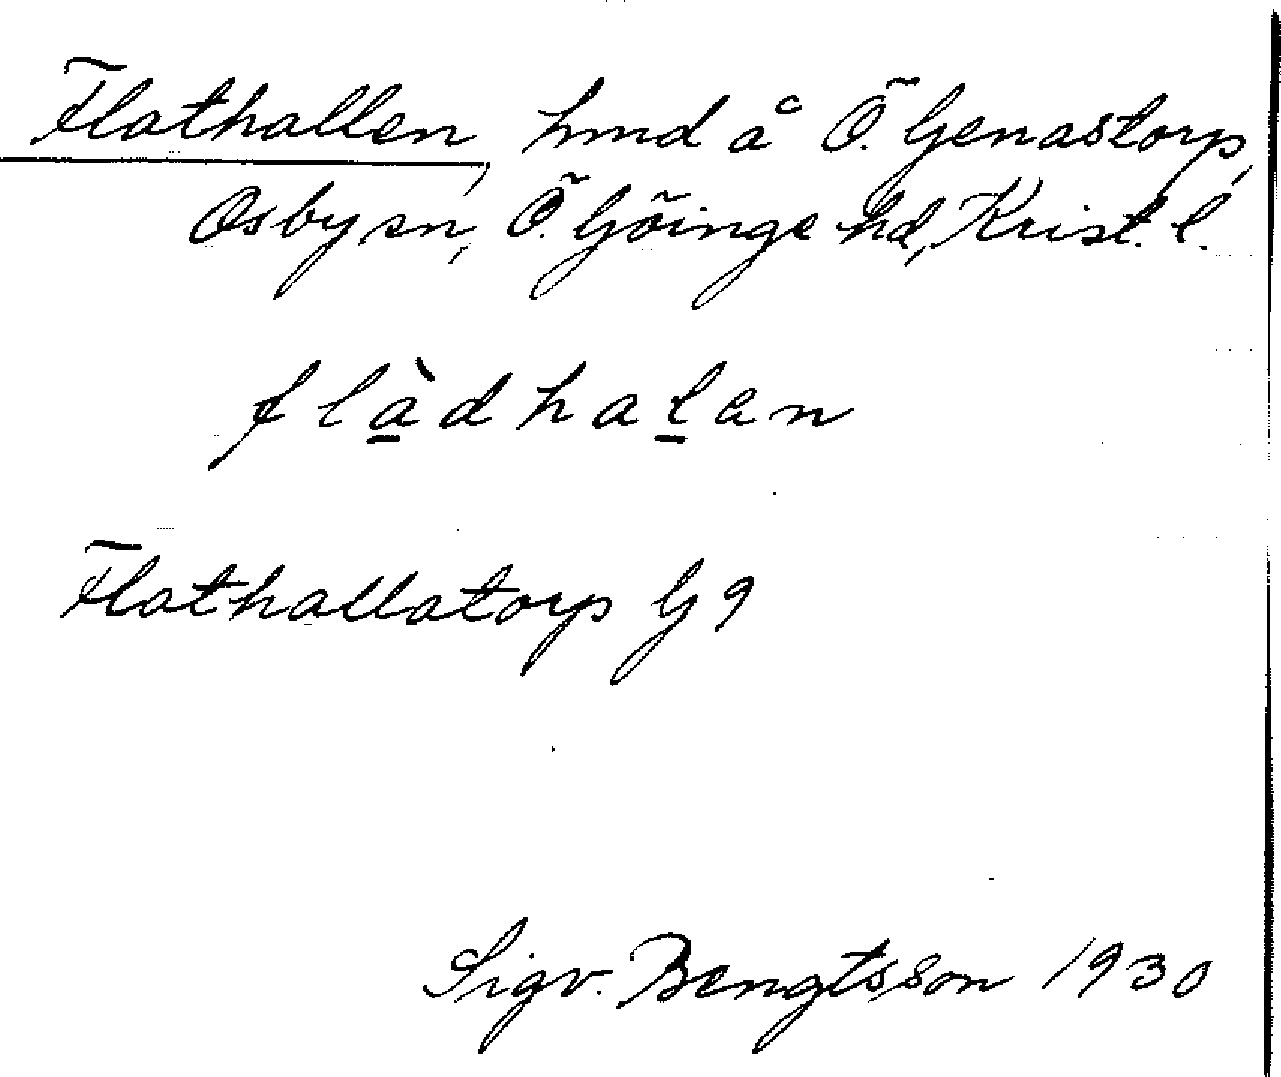 Flathallen, hmd å Ö. Genastorp,
Osby sn, Ö. Göinge hd, Krist. l.
flàdhalen
Flathallatorp G 9
Sigv. Bengtsson 1930